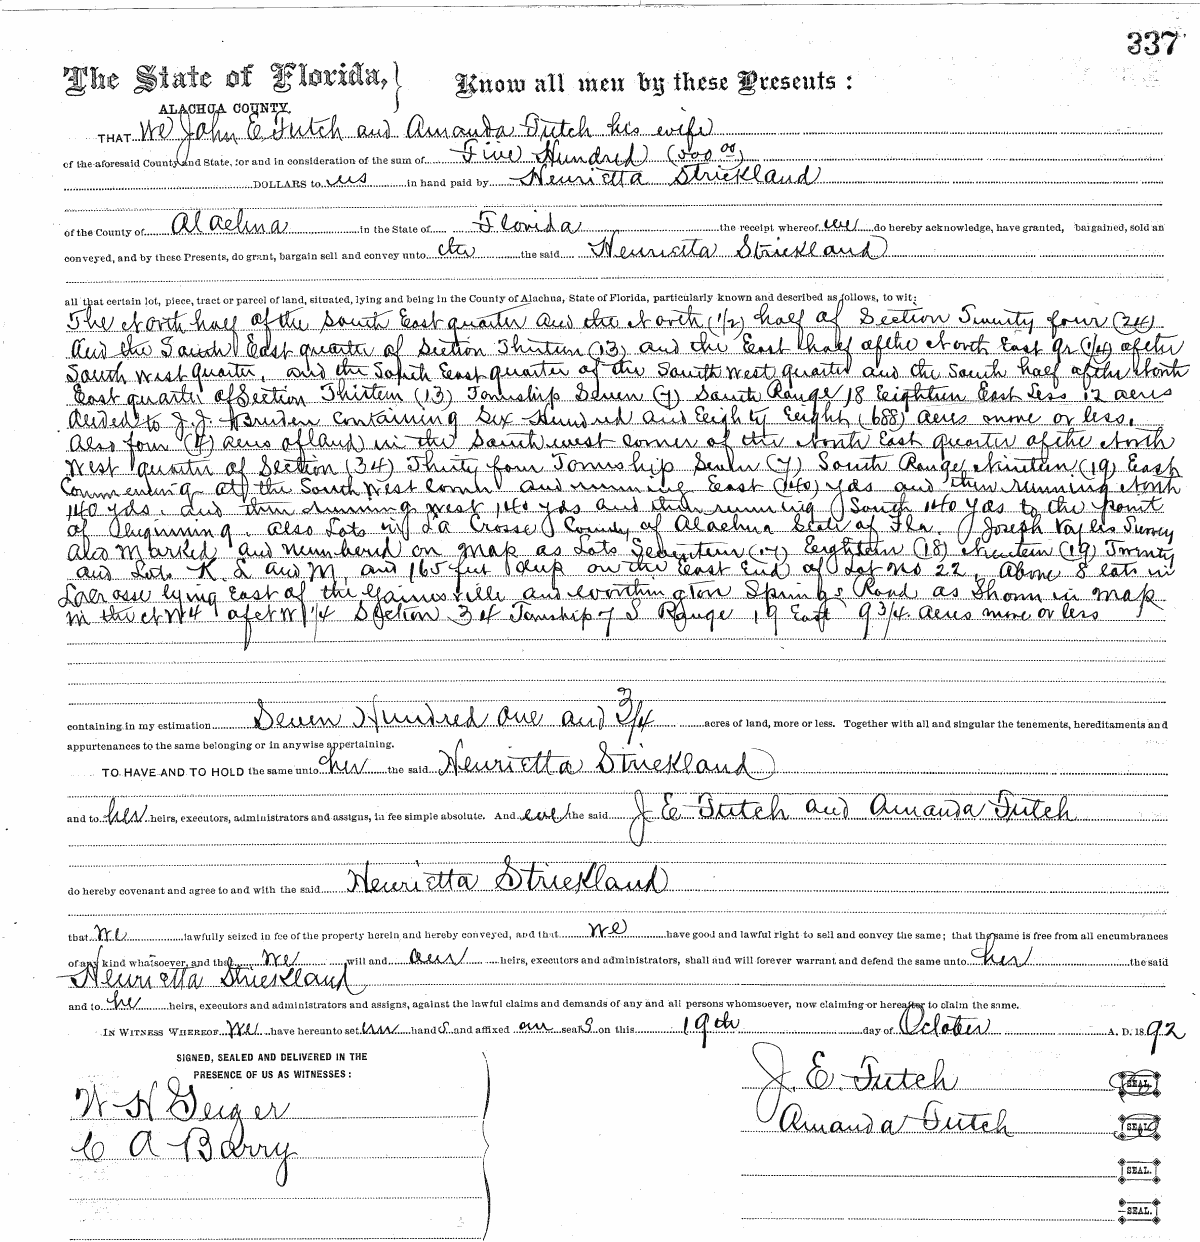 337
The State of Florida,
Know all men by these Presents :
ALACHUA COUNTY.
THAT We John E. Futch and Amanda Futch his wife
of the aforesaid County and State, for and in consideration of the sum of Five Hundred (500 00)
DOLLARS to us in hand paid by Henrietta Strickland
of the County of Alachua in the State of Florida the receipt whereof we do hereby acknowledge, have granted, bargained, sold an
conveyed, and by these Presents, do grant, bargain sell and convey unto the said Henrietta Strickland
all that certain lot, piece, tract or parcel of land, situated, lying and being in the County of Alachua, State of Florida, particularly known and described as follows, to wit:
The North half of the South East quarter and the North (1/2) half of Section Twenty four (24)
And the South East quarter of Section Thirteen (13) and the East half of the North East qr (1/4) of the
South West quarter, and the South East quarter of the South West quarter and the South half of the North
East quarter of Section Thirteen (13) Township Seven (7) South Range 18 Eighteen East Less 12 acres
deeded to J. J. Containing Six Hundred and Eighty Eight (688) acres more or less.
Also four (4) acres of land in the South west corner of the North East quarter of the North
West quarter of Section (34) Thirty four Township Seven (7) South Range Nineteen (19) East
Commencing at the South West Corner and running East (140) yds and then running North
140 yds. and then running West 140 yds and then running South 140 yds to the point
of Beginning. Also Lots in La Crosse County of Alachua State of Fla. Joseph Survey
also Marked and numbered on map as Lots Seventeen (17) Eighteen (18) Nineteen (19) Twenty
and Lots K. L and M, and 165 feet deep on the East End of Lot No 22. Above 8 lots in
Lacrosse lying East of the Gainesville and Worthington Springs Road as Shown in map
in the of N W 1/4 Section 34 Township 7 S Range 19 East 9 3/4 acres more or less
containing in my estimation Seven Hundred one and 3/4 acres of land, more or less. Together with all and singular the tenements, hereditaments and
appurtenances to the same belonging or in anywise appertaining.
TO HAVE AND TO HOLD the same unto her the said Henrietta Strickland
and to her heirs, executors, administrators and assigns, in fee simple absolute. And we the said J E Futch and Amanda Futch
do hereby covenant and agree to and with the said Henrietta Strickland
that we lawfully seized in fee of the property herein and hereby conveyed, and that we have good and lawful right to sell and convey the same; that the same is free from all encumbrances
of any kind whatsoever, and that we will and our heirs, executors and administrators, shall and will forever warrant and defend the same unto her the said
Henrietta Strickland
and to he heirs, executors and administrators and assigns, against the lawful claims and demands of any and all persons whomsoever, now claiming or hereafter to claim the same.
IN WITNESS WHEREOF We have hereunto set our hand s and affixed our seal s on this 19th day of October A. D. 1892
SIGNED, SEALED AND DELIVERED IN THE
PRESENCE OF US AS WITNESSES:
J. E. Futch SEAL.
W H Geiger
Amanda Futch SEAL.
C A Barry
SEAL.
SEAL.